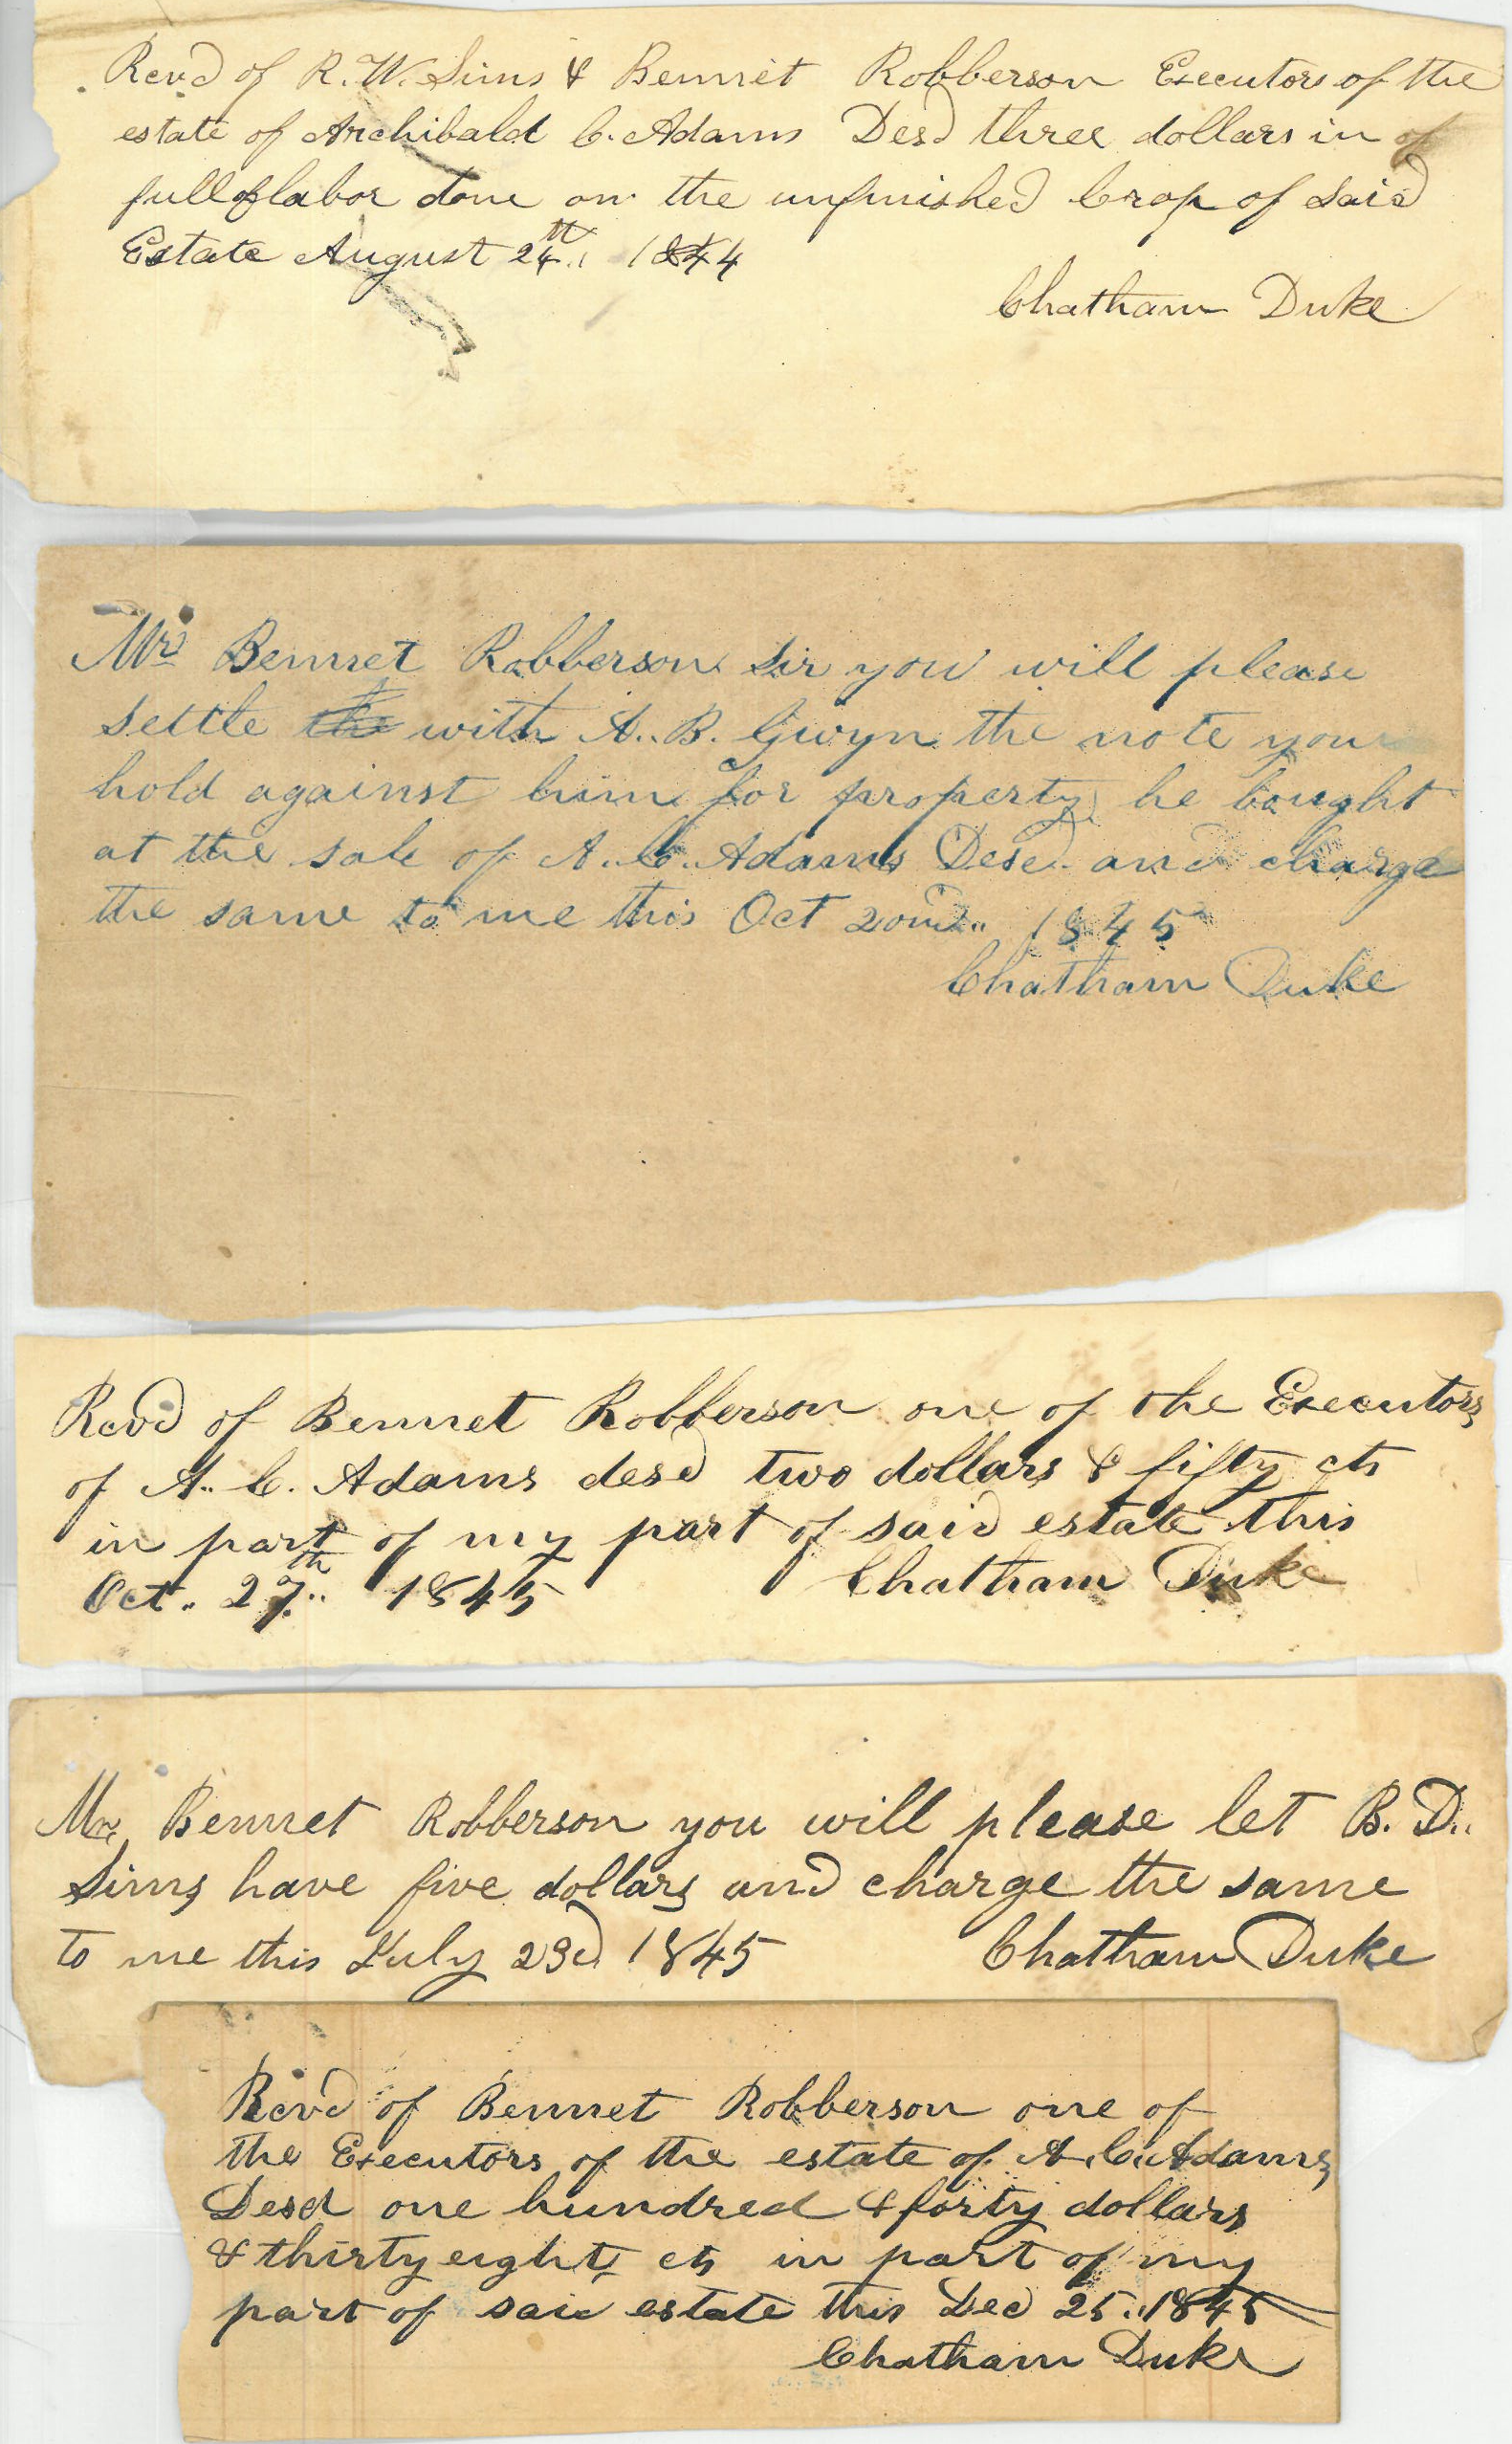 Recvd of R. W. Sims & Bennet Robberson Executors of the
estate of Archibald C. Adams Desd three dollars in of
full of labor done on the unfinished Crop of Said
Estate August 24th 1844
Chatham Duke
Mr Bennet Robberson Sir you will please
settle the with A. B. Gwyn the note you
hold against him for property he bought
at the sale of A. C. Adams Desd and charge
the same to me this Oct 20 1845
Chatham Duke
Recvd of Bennet Robberson one of the Executors
of A. C. Adams desd two dollars & fifty cts
in part of my part of said estate this
Oct. 27th 1845 Chatham Duke
Mr Bennet Robberson you will please let B. D.
Sims have five dollars and charge the same
to me this July 23d 1845 Chatham Duke
Recvd of Bennet Robberson one of
the Executors of the estate of A. C. Adams
Desd one hundred & forty dollars
& thirty eight cts in part of my
part of said estate this Dec 25. 1845
Chatham Duke